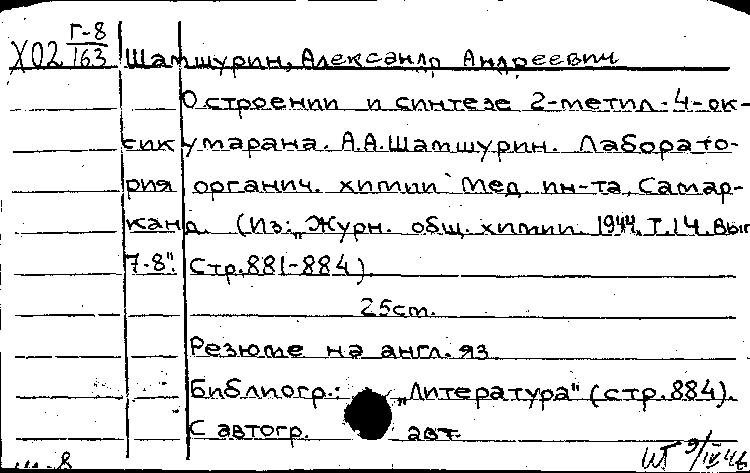 Х02 Г-8/163 Шамшурин, Александр Андреевич
О строении и синтезе 2-метил-4-ок-
сикумарана. А.А.Шамшурин. Лаборато-
рия органич. химии Мед. ин-та, Самар-
канд. (Из: „Журн. общ. химии. 1944. Т.14. Вып
7-8". Стр.881-884).
25 cm.
Резюме на англ. яз.
Библиогр.: „Литература" (стр.884).
С автогр. авт.